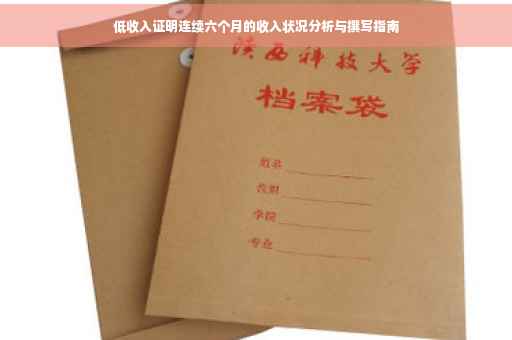 低收入证明连续六个月的收入状况分析与撰写指南
陕西科技大学
档案袋
姓名
性别
学院
专业